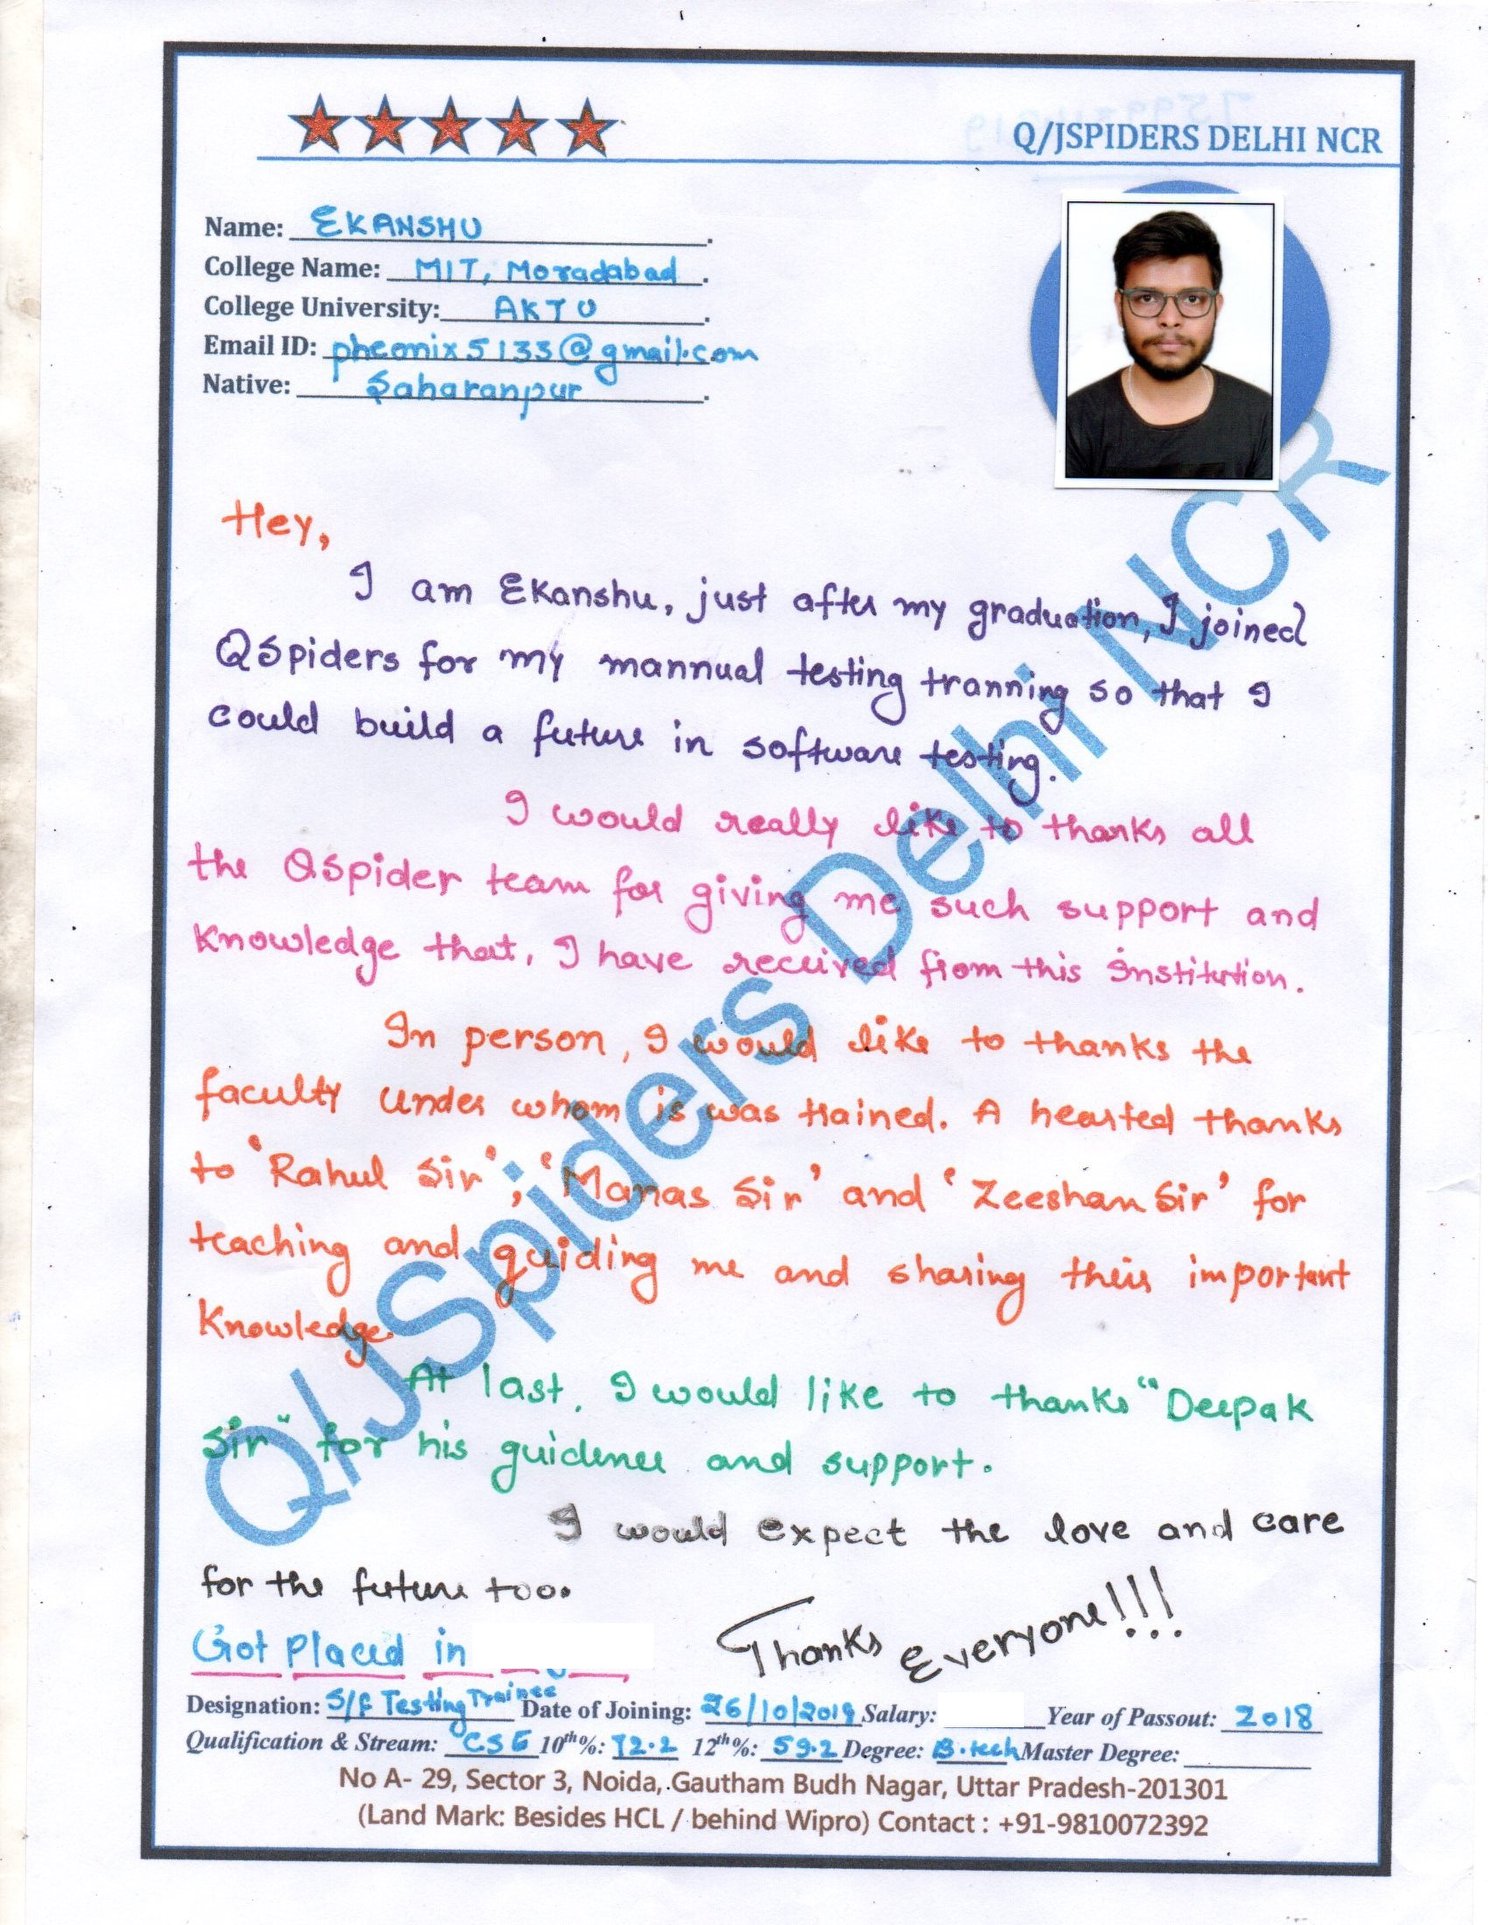 Q/JSPIDERS DELHI NCR
Name: EKANSHU.
College Name: MIT, Moradabad.
College University: AKTU.
Email ID: pheonix5133@gmail.com
Native: Saharanpur.
Hey,
I am Ekanshu, just after my graduation, I joined
QSpiders for my mannual testing tranning so that I
could build a future in software testing.
I would really like to thanks all
the QSpider team for giving me such support and
Knowledge that, I have received from this institution.
In person, I would like to thanks the
faculty under whom is was trained. A hearted thanks
to 'Rahul Sir', 'Manas Sir' and 'Zeeshan Sir' for
teaching and guiding me and sharing their important
Knowledge.
At last, I would like to thanks "Deepak
Sir" for his guidence and support.
I would expect the love and care
for the future too.
Thanks Everyone!!!
Got Placed in
Designation: S/f Testing Trainee Date of Joining: 26/10/2019 Salary: Year of Passout: 2018
Qualification & Stream: CSE 10th%: 72.2 12th%: 59.2 Degree: B.tech Master Degree:
No A- 29, Sector 3, Noida, Gautham Budh Nagar, Uttar Pradesh-201301
(Land Mark: Besides HCL / behind Wipro) Contact : +91-9810072392
Q/JSpiders Delhi NCR